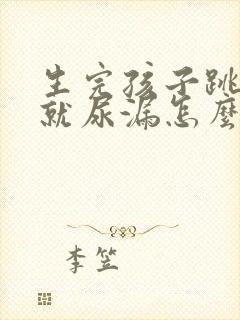 生完孩子跳
就尿漏怎麼
李笠